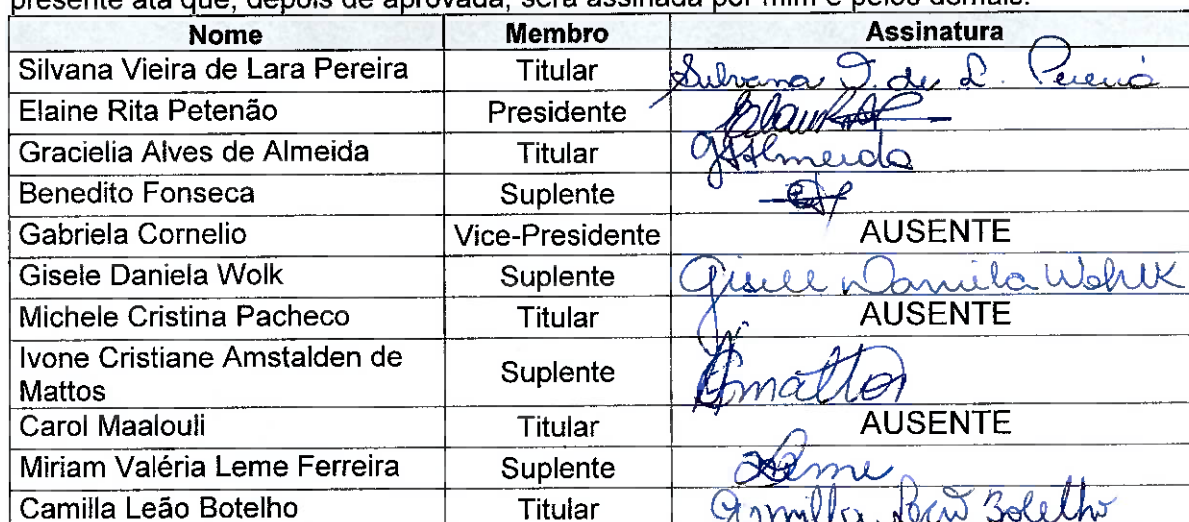 presente ata que, depois de aprovada, será assinada por mim e pelos demais.
Nome Membro Assinatura
Silvana Vieira de Lara Pereira Titular Silvana V. de L. Pereira
Elaine Rita Petenão Presidente
Gracielia Alves de Almeida Titular GAAlmeida
Benedito Fonseca Suplente
Gabriela Cornelio Vice-Presidente AUSENTE
Gisele Daniela Wolk Suplente Gisele Daniela Wohlk
Michele Cristina Pacheco Titular AUSENTE
Ivone Cristiane Amstalden de
Mattos Suplente
Carol Maalouli Titular AUSENTE
Miriam Valéria Leme Ferreira Suplente Leme
Camilla Leão Botelho Titular Camilla Leão Botelho